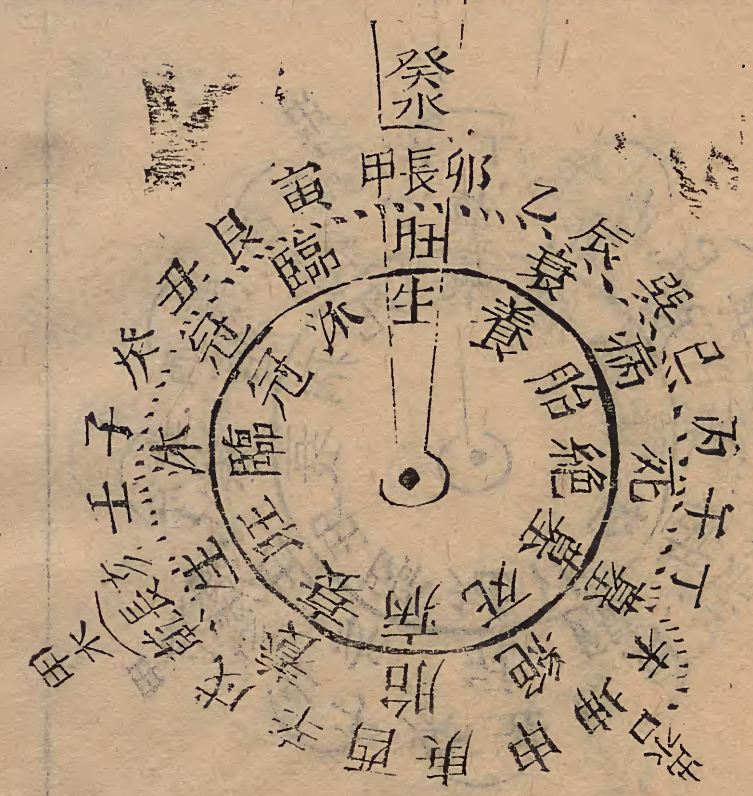 癸水
甲長卯乙辰巽巳丙午丁未坤申庚酉辛戌乾亥壬子癸丑艮寅
旺衰病死墓絕胎養生沐冠臨
生養胎絕墓死病衰旺臨冠沐
長
甲木